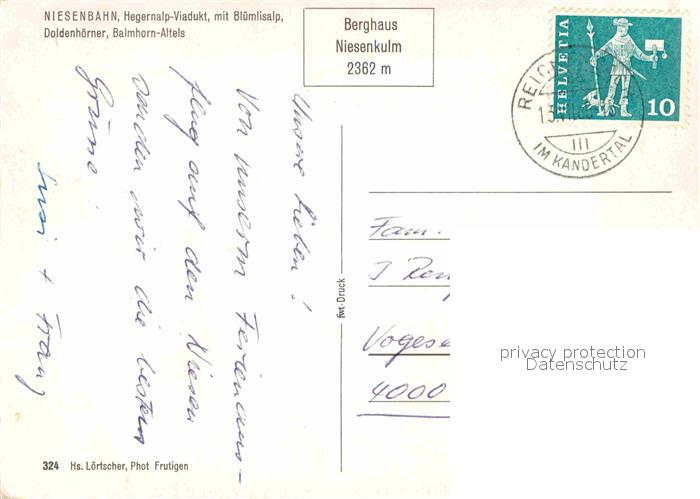 NIESENBAHN, Hegernalp-Viadukt, mit Blümlisalp,
Doldenhörner, Balmhorn-Altels
Berghaus
Niesenkulm
2362 m
HELVETIA
10
III
IM KANDERTAL
Unsere Lieben!
Von unserm Ferienaus-
flug auf den Niesen
senden wir die besten
Grüsse!
Susi + Franz
Fam.
J
Vogese
4000
privacy protection
Datenschutz
Druck
324 Hs. Lörtscher, Phot Frutigen